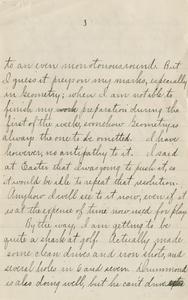 3
to an even monotonous round. But
I guess it preys on my marks, especially
in Geometry; when I am not able to
finish my work preparation during the
first of the weeks, somehow Geometry is
always the one to be omitted. I have
however, no antipathy to it. I said
at Easter that I was going to push it, so
it would be able to repeat that resolution.
Anyhow I will see to it now, even if it
is at the expense of time now used for play.
By the way, I am getting to be
quite a shark at golf. Actually made
some clean drives and iron shots, and
several holes in 6 and seven. Drummond
is also doing well, but he can't drive